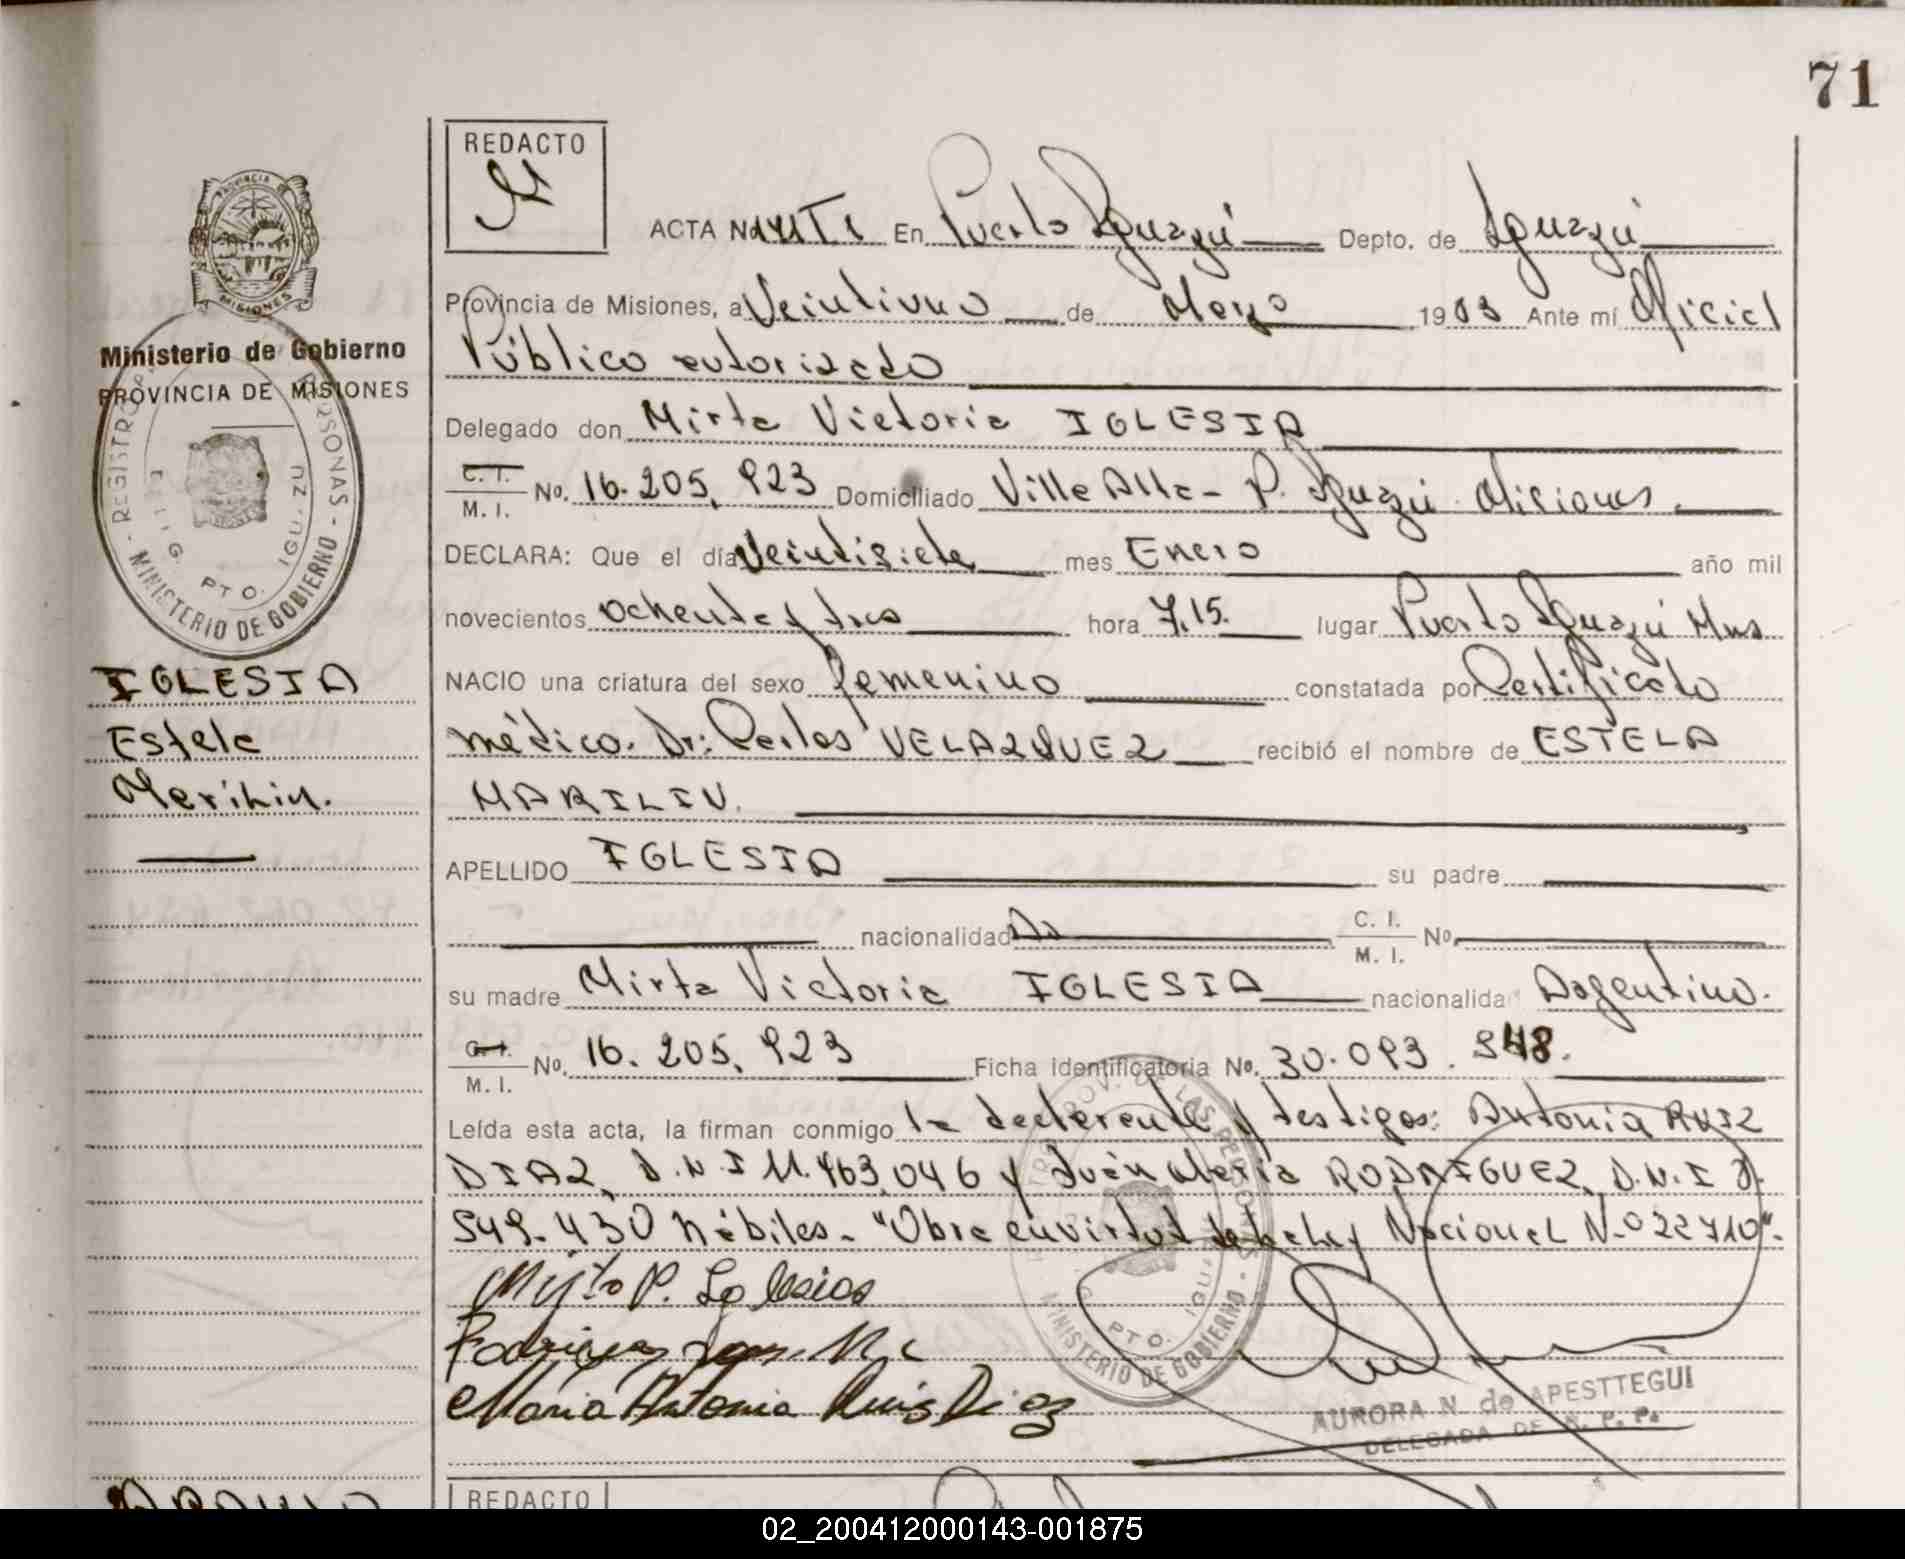 71
REDACTO
ACTA Nº En Puerto Iguazú Depto. de Iguazú
Provincia de Misiones, a Veintiuno de Marzo 1983 Ante mí Oficial
Público autorizado
Delegado don Mirta Victoria IGLESIA
C. I. M. I. No. 16.205.923 Domiciliado Villa Alta - P. Iguazú Misiones
DECLARA: Que el día Veintisiete mes Enero año mil
novecientos ochenta y tres hora 7,15. lugar Puerto Iguazú Mns
NACIO una criatura del sexo femenino constatada por Certificado
médico. Dr: Carlos VELAZQUEZ recibió el nombre de ESTELA
MARILIN.
APELLIDO IGLESIA su padre
nacionalidad C. I. M. I. No.
su madre Mirta Victoria IGLESIA nacionalida Argentina.
C. I. M. I. No. 16.205.923 Ficha identificatoria No. 30.093.948.
Leída esta acta, la firman conmigo la declarante y testigos: Antonia RUIZ
DIAZ, D.N.I 11.463.046 y Juán María RODRIGUEZ, D.N.I
549.430 hábiles - "Obra en virtud de la Ley Nacional Nº 22710".
Mirta V. Iglesias
Rodriguez Juan Ma
Maria Antonia Ruis Diaz
AURORA N de APESTTEGUI
DELEGADA DE N. P. P.
PROVINCIA DE
MISIONES
Ministerio de Gobierno
PROVINCIA DE MISIONES
REGISTRO PERSONAS - MINISTERIO DE GOBIERNO -
PTO. IGUAZU
IGLESIA
Estela
Marilin.
PROV. DE LAS PERSONAS - MINISTERIO DE GOBIERNO
PTO. IGUA
REDACTO
02_200412000143-001875